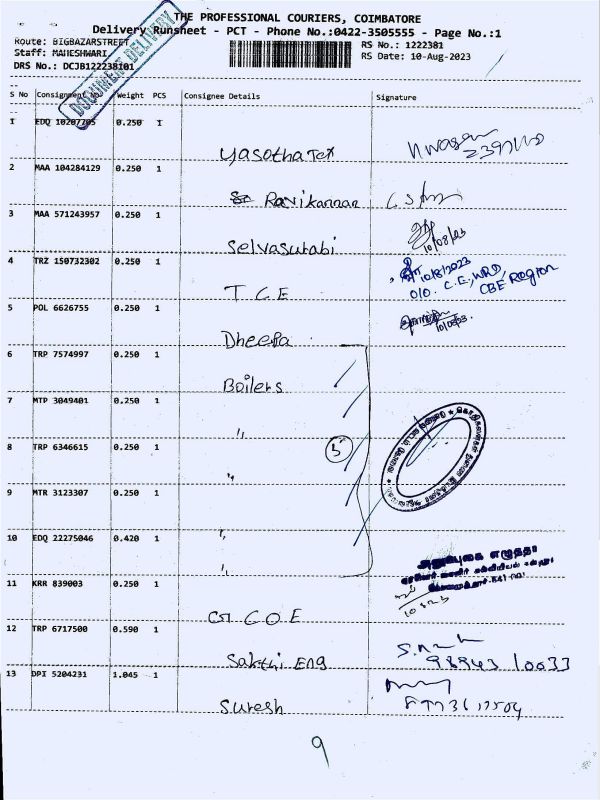 THE PROFESSIONAL COURIERS, COIMBATORE
Delivery Runsheet - PCT - Phone No.:0422-3505555 - Page No.:1
Route: BIGBAZARSTREET
RS No.: 1222381
Staff: MAHESHWARI
RS Date: 10-Aug-2023
DRS No.: DCJB122238101
DOCUMENT DELIVERY
S No Consignment No Weight PCS Consignee Details Signature
1 EDQ 10207705 0.250 1
Yasotha Tex
2 MAA 104284129 0.250 1
Ravikannan
3 MAA 571243957 0.250 1
Selvasurabi
10/08/23
4 TRZ 150732302 0.250 1
10/8/2023
T C E
O/O. C.E., WRD,
CBE Region
5 POL 6626755 0.250 1
Dheepa
6 TRP 7574997 0.250 1
Boilers
7 MTP 3049401 0.250 1
"
8 TRP 6346615 0.250 1
5
"
9 MTR 3123307 0.250 1
"
10 EDQ 22275046 0.420 1
"
அனுப்புகை எழுத்தர்
11 KRR 839003 0.250 1
G C O E
12 TRP 6717500 0.590 1
Sakthi Eng
98943 10033
13 DPI 5204231 1.045 1
Suresh
9